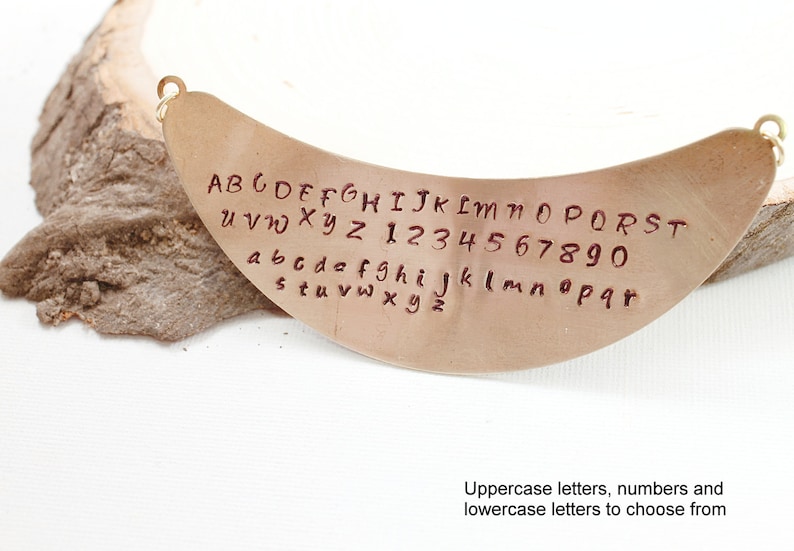 ABCDEFGHIJKLmnOPQRST
uvwxyz 1234567890
abcdefghijklmnopqr
stuvwxyz
Uppercase letters, numbers and
lowercase letters to choose from